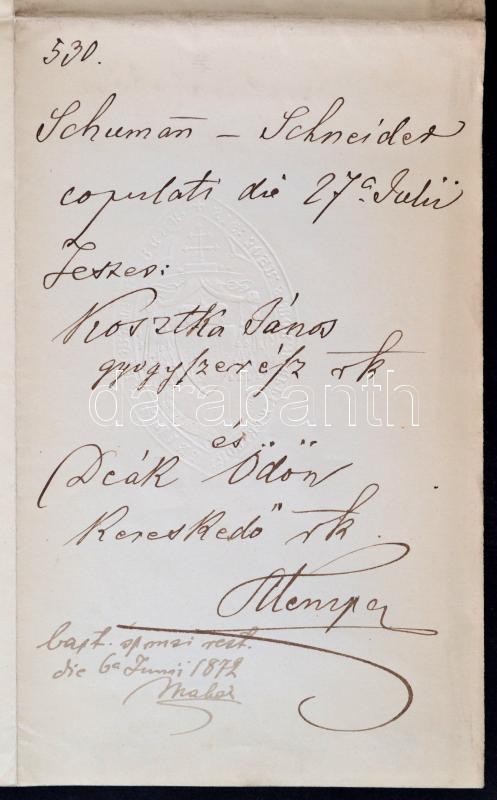 530.
Schumañ – Schneider
copulati die 27ª Julii
Teszes:
Kosztka János
gyógyszerész rk
és
Deák Ödön
Kereskedő rk.
bapt. sponsi rest.
die 6ª Junii 1872
darabanth